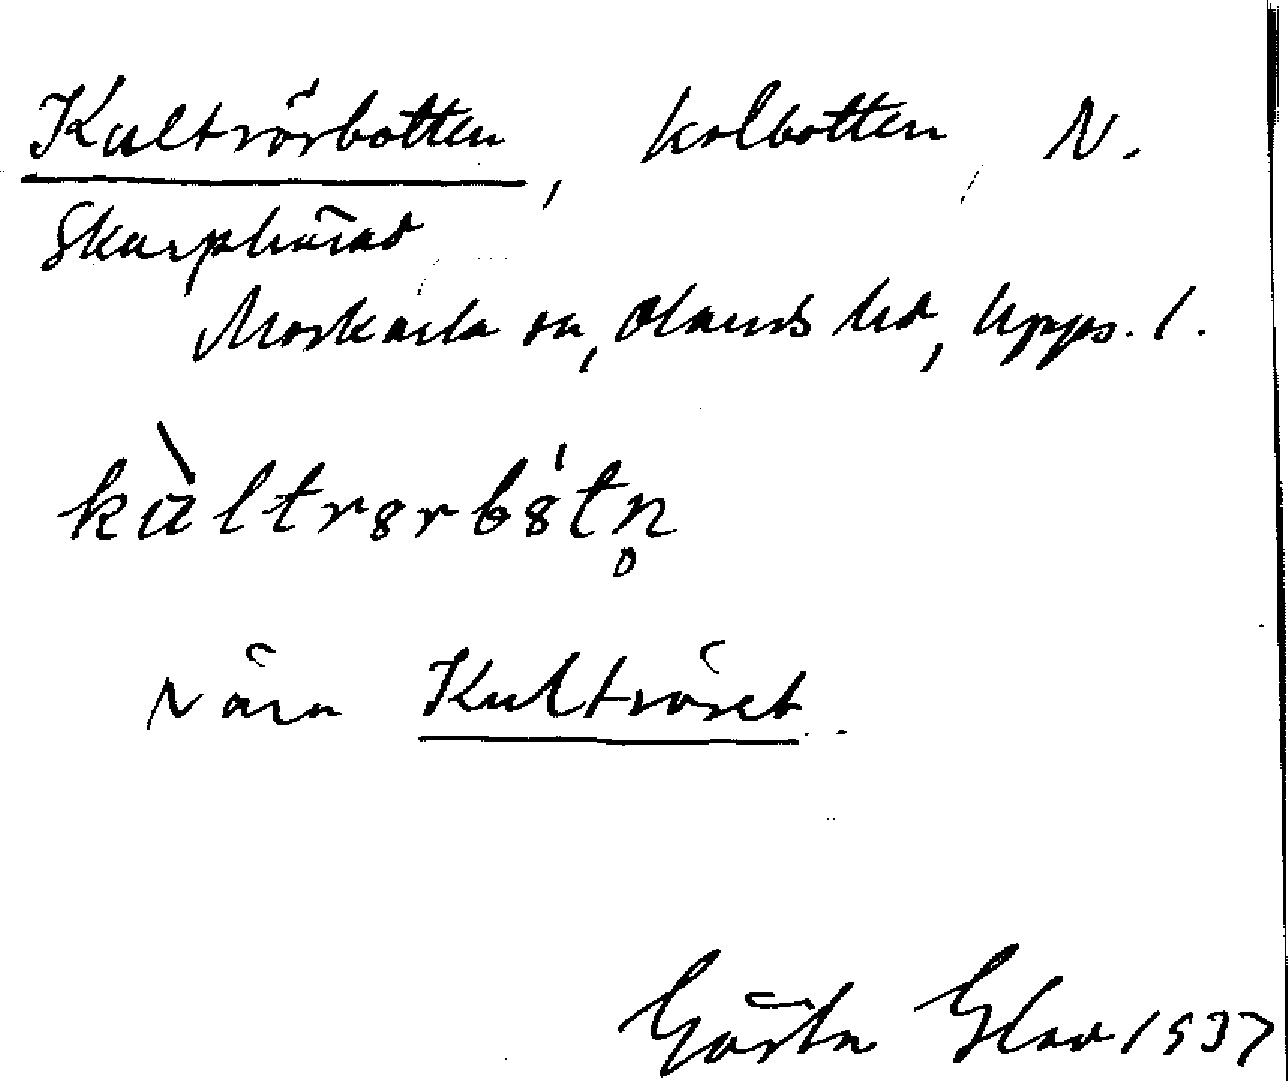 Kultrörbotten, kolbotten, N.
Skarphärad
Morkarla sn, Olands hd, Upps. l.
kultrørbøtn̥
Nära Kultröset.
Gösta Glad 1937